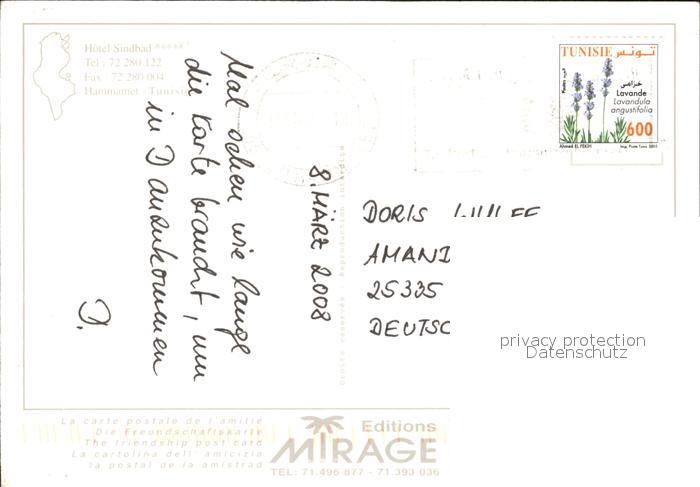 Hôtel Sindbad *****
Tel : 72 280 122
Fax 72 280 004
Hammamet - Tunisie
Mal sehen wie lange
die Karte braucht, um
in D anzukommen
D.
8. MÄRZ 2008
TUNISIE تونس
خزامى
Lavande
Lavandula
angustifolia
600
Ahmed EL FEKIH
DORIS
AMAND
25335
DEUTSC
privacy protection
Datenschutz
La carte postale de l'amitie
Die Freundschaftskarte
The friendship post card
La cartolina dell' amicizia
la postal de la amistrad
Editions
MIRAGE
TEL: 71.496 877 - 71.393 036